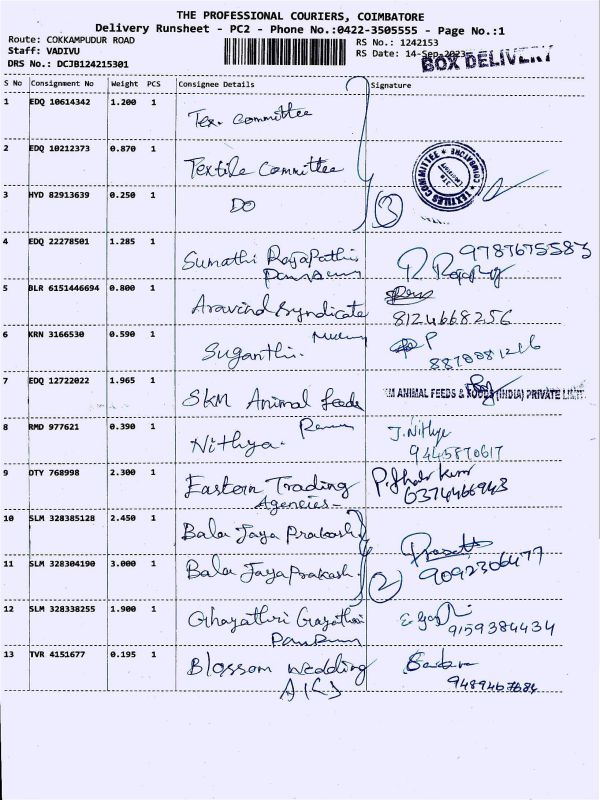 THE PROFESSIONAL COURIERS, COIMBATORE
Delivery Runsheet - PC2 - Phone No.:0422-3505555 - Page No.:1
Route: COKKAMPUDUR ROAD
RS No.: 1242153
Staff: VADIVU
RS Date: 14-Sep-2023
DRS No.: DCJB124215301
BOX DELIVERY
S No Consignment No Weight PCS Consignee Details Signature
1 EDQ 10614342 1.200 1 Tex. Committee
2 EDQ 10212373 0.870 1 Textile Committee
TEXTILES COMMITTEE * COIMBATORE *
3 HYD 82913639 0.250 1 DO 3
4 EDQ 22278501 1.285 1 Sumathi Rajapathi 9787675583
5 BLR 6151446694 0.800 1 Aravind Syndicate 8124668256
6 KRN 3166530 0.590 1 Suganthi. P
8870081266
7 EDQ 12722022 1.965 1 SKM Animal feeds ANIMAL FEEDS & FOODS (INDIA) PRIVATE LIMIT
8 RMD 977621 0.390 1 Nithya. J. Nithya
9445870617
9 DTY 768998 2.300 1 Eastern Trading
Agencies-
6374466943
10 SLM 328385128 2.450 1 Bala Jaya Prakash
11 SLM 328304190 3.000 1 Bala Jaya Prakash 2 9092306477
12 SLM 328338255 1.900 1 Ghayathri Gayathri
9159384434
13 TVR 4151677 0.195 1 Blossom wedding
9489467684